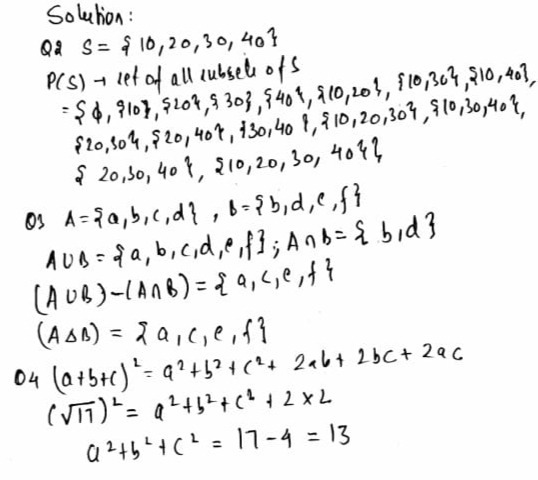 Solution:
Q2 S = {10, 20, 30, 40}
P(S) → set of all subsets of S
= {ϕ, {10}, {20}, {30}, {40}, {10,20}, {10,30}, {10,40},
{20,30}, {20,40}, {30,40}, {10,20,30}, {10,30,40},
{20,30,40}, {10,20,30,40}}
Q3 A = {a,b,c,d}, B = {b,d,e,f}
A∪B = {a,b,c,d,e,f}; A∩B = {b,d}
(A∪B)-(A∩B) = {a,c,e,f}
(A∆B) = {a,c,e,f}
Q4 (a+b+c)² = a²+b²+c²+ 2ab + 2bc + 2ac
(√17)² = a²+b²+c² + 2×2
a²+b²+c² = 17-4 = 13